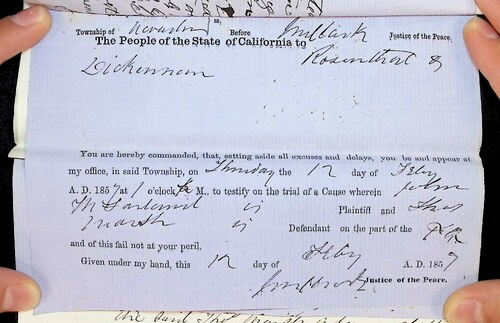 ss,
Township of Nevada Before Justice of the Peace.
The People of the State of California to Rosenthal &
Dickennan
You are hereby commanded, that, setting aside all excuses and delays, you be and appear at
my office, in said Township, on Thursday the 12 day of Feby
A. D. 1857 at 1 o'clock M., to testify on the trial of a Cause wherein John
McFarland is Plaintiff and Thos
Marsh is Defendant on the part of the
and of this fail not at your peril.
Given under my hand, this 12 day of Feby A. D. 1857
Justice of the Peace.
the said Thos Marsh